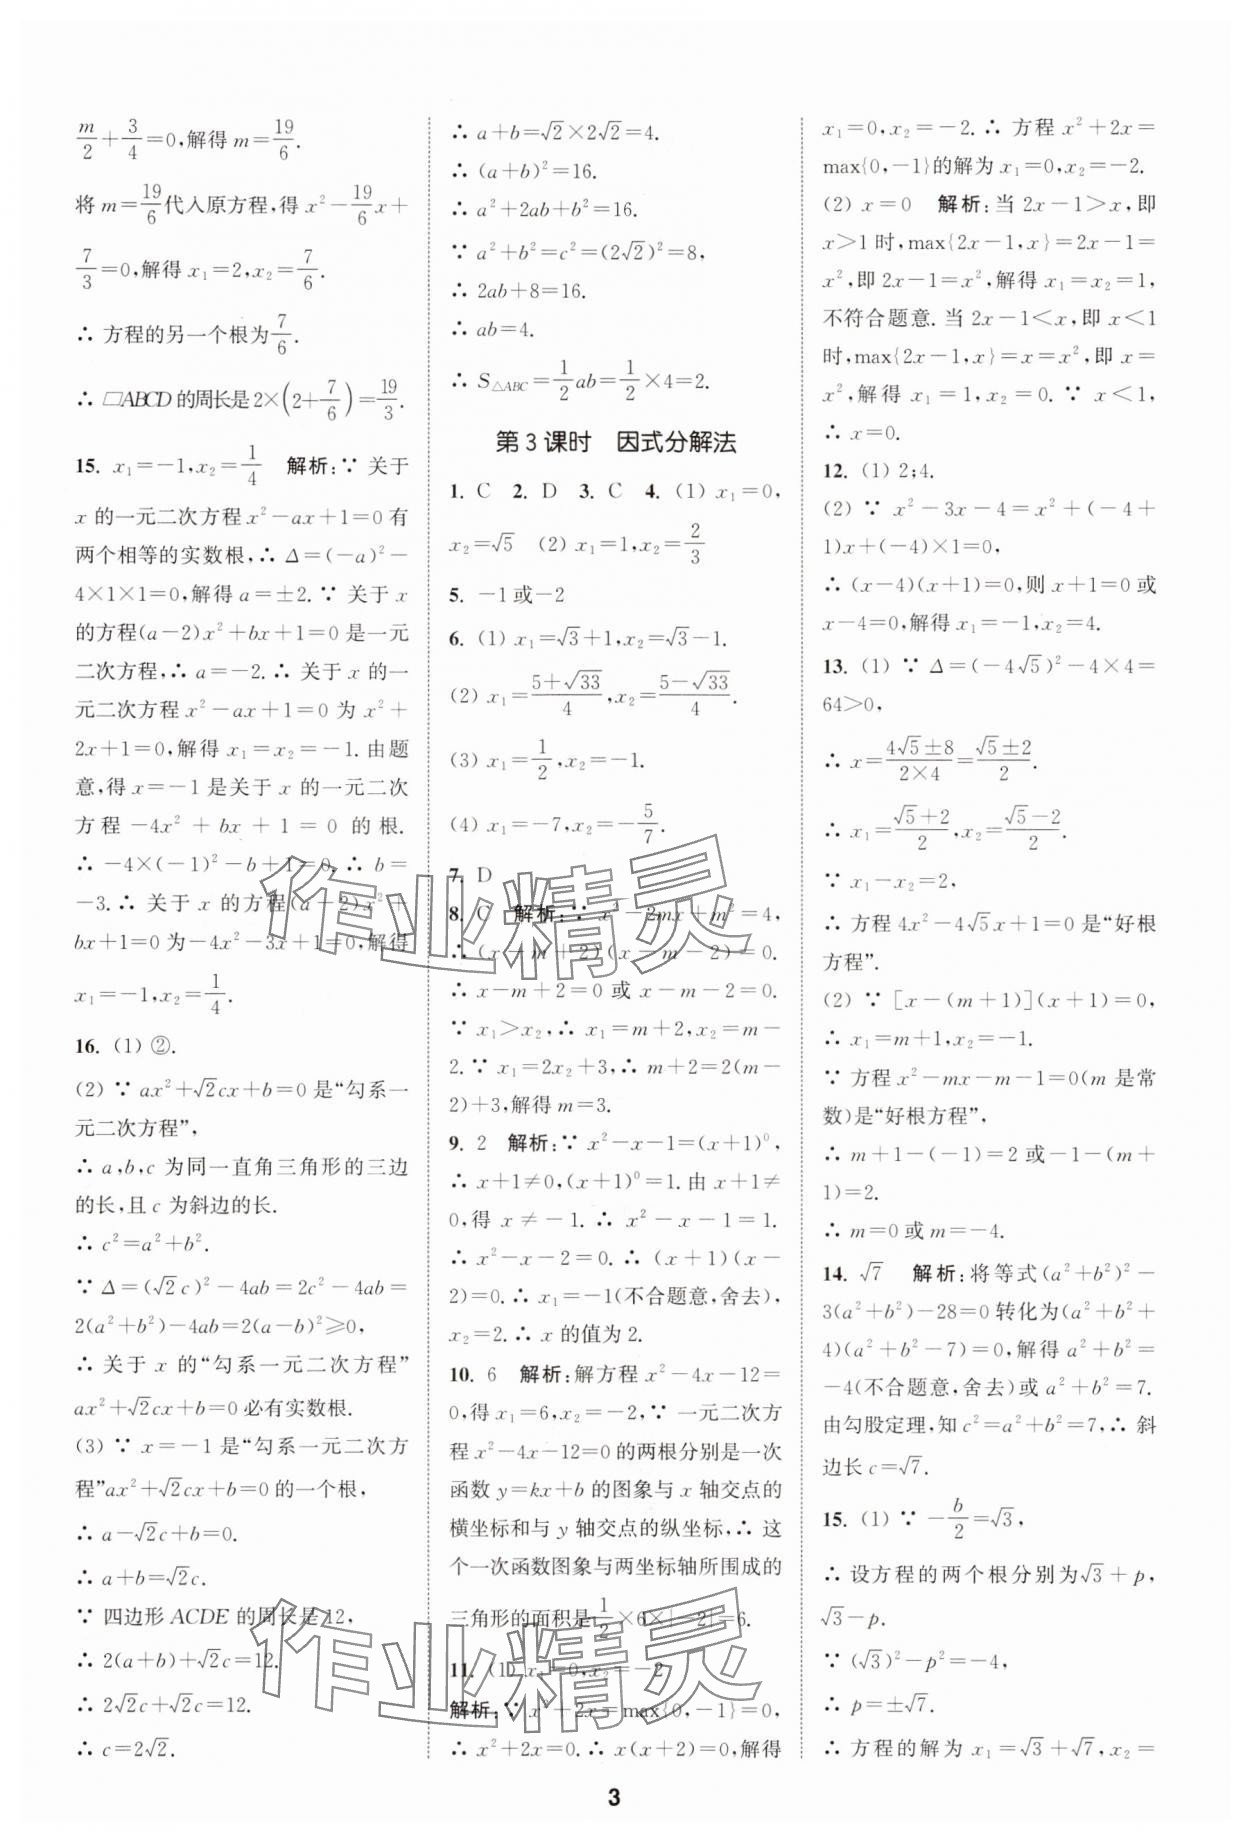 m/2+3/4=0,解得 m=19/6.
将 m=19/6代入原方程,得 x²-19/6x+
7/3=0,解得 x₁=2,x₂=7/6.
∴ 方程的另一个根为7/6.
∴ □ABCD的周长是2×(2+7/6)=19/3.
15. x₁=-1,x₂=1/4 解析:∵ 关于
x 的一元二次方程 x²-ax+1=0 有
两个相等的实数根,∴ Δ=(-a)²-
4×1×1=0,解得 a=±2.∵ 关于 x
的方程(a-2)x²+bx+1=0 是一元
二次方程,∴ a=-2.∴ 关于 x 的一
元二次方程 x²-ax+1=0 为 x²+
2x+1=0,解得 x₁=x₂=-1.由题
意,得 x=-1 是关于 x 的一元二次
方程 -4x²+bx+1=0 的根.
∴ -4×(-1)²-b+1=0,∴ b=
-3.∴ 关于 x 的方程(a-2)x²+
bx+1=0 为-4x²-3x+1=0,解得
x₁=-1,x₂=1/4.
16. (1) ②.
(2) ∵ ax²+√2cx+b=0 是“勾系一
元二次方程”,
∴ a,b,c 为同一直角三角形的三边
的长,且 c 为斜边的长.
∴ c²=a²+b².
∵ Δ=(√2c)²-4ab=2c²-4ab=
2(a²+b²)-4ab=2(a-b)²≥0,
∴ 关于 x 的“勾系一元二次方程”
ax²+√2cx+b=0 必有实数根.
(3) ∵ x=-1 是“勾系一元二次方
程”ax²+√2cx+b=0 的一个根,
∴ a-√2c+b=0.
∴ a+b=√2c.
∵ 四边形 ACDE 的周长是 12,
∴ 2(a+b)+√2c=12.
∴ 2√2c+√2c=12.
∴ c=2√2.
∴ a+b=√2×2√2=4.
∴ (a+b)²=16.
∴ a²+2ab+b²=16.
∵ a²+b²=c²=(2√2)²=8,
∴ 2ab+8=16.
∴ ab=4.
∴ S△ABC=1/2ab=1/2×4=2.
第 3 课时 因式分解法
1. C 2. D 3. C 4. (1) x₁=0,
x₂=√5 (2) x₁=1,x₂=2/3
5. -1或-2
6. (1) x₁=√3+1,x₂=√3-1.
(2) x₁=(5+√33)/4,x₂=(5-√33)/4.
(3) x₁=1/2,x₂=-1.
(4) x₁=-7,x₂=-5/7.
7. D
8. C 解析:∵ x²-2mx+m²=4,
∴ (x-m+2)(x-m-2)=0.
∴ x-m+2=0 或 x-m-2=0.
∵ x₁>x₂,∴ x₁=m+2,x₂=m-
2.∵ x₁=2x₂+3,∴ m+2=2(m-
2)+3,解得 m=3.
9. 2 解析:∵ x²-x-1=(x+1)⁰,
∴ x+1≠0,(x+1)⁰=1.由 x+1≠
0,得 x≠-1.∴ x²-x-1=1.
∴ x²-x-2=0.∴ (x+1)(x-
2)=0.∴ x₁=-1(不合题意,舍去),
x₂=2.∴ x 的值为 2.
10. 6 解析:解方程 x²-4x-12=
0,得 x₁=6,x₂=-2,∵ 一元二次方
程 x²-4x-12=0 的两根分别是一次
函数 y=kx+b 的图象与 x 轴交点的
横坐标和与 y 轴交点的纵坐标,∴ 这
个一次函数图象与两坐标轴所围成的
三角形的面积是1/2×6×|-2|=6.
11. (1) x₁=0,x₂=-2
解析:∵ x²+2x=max{0,-1}=0,
∴ x²+2x=0.∴ x(x+2)=0,解得
x₁=0,x₂=-2.∴ 方程 x²+2x=
max{0,-1}的解为 x₁=0,x₂=-2.
(2) x=0 解析:当 2x-1>x,即
x>1 时,max{2x-1,x}=2x-1=
x²,即 2x-1=x²,解得 x₁=x₂=1,
不符合题意.当 2x-1<x,即 x<1
时,max{2x-1,x}=x=x²,即 x=
x²,解得 x₁=1,x₂=0.∵ x<1,
∴ x=0.
12. (1) 2;4.
(2) ∵ x²-3x-4=x²+(-4+
1)x+(-4)×1=0,
∴ (x-4)(x+1)=0,则 x+1=0 或
x-4=0,解得 x₁=-1,x₂=4.
13. (1) ∵ Δ=(-4√5)²-4×4=
64>0,
∴ x=(4√5±8)/(2×4)=(√5±2)/2.
∴ x₁=(√5+2)/2,x₂=(√5-2)/2.
∵ x₁-x₂=2,
∴ 方程 4x²-4√5x+1=0 是“好根
方程”.
(2) ∵ [x-(m+1)](x+1)=0,
∴ x₁=m+1,x₂=-1.
∵ 方程 x²-mx-m-1=0(m 是常
数)是“好根方程”,
∴ m+1-(-1)=2 或-1-(m+
1)=2.
∴ m=0 或 m=-4.
14. √7 解析:将等式(a²+b²)²-
3(a²+b²)-28=0 转化为(a²+b²+
4)(a²+b²-7)=0,解得 a²+b²=
-4(不合题意,舍去)或 a²+b²=7.
由勾股定理,知 c²=a²+b²=7,∴ 斜
边长 c=√7.
15. (1) ∵ -b/2=√3,
∴ 设方程的两个根分别为√3+p,
√3-p.
∵ (√3)²-p²=-4,
∴ p=±√7.
∴ 方程的解为 x₁=√3+√7,x₂=
3
作业精灵
作业精灵